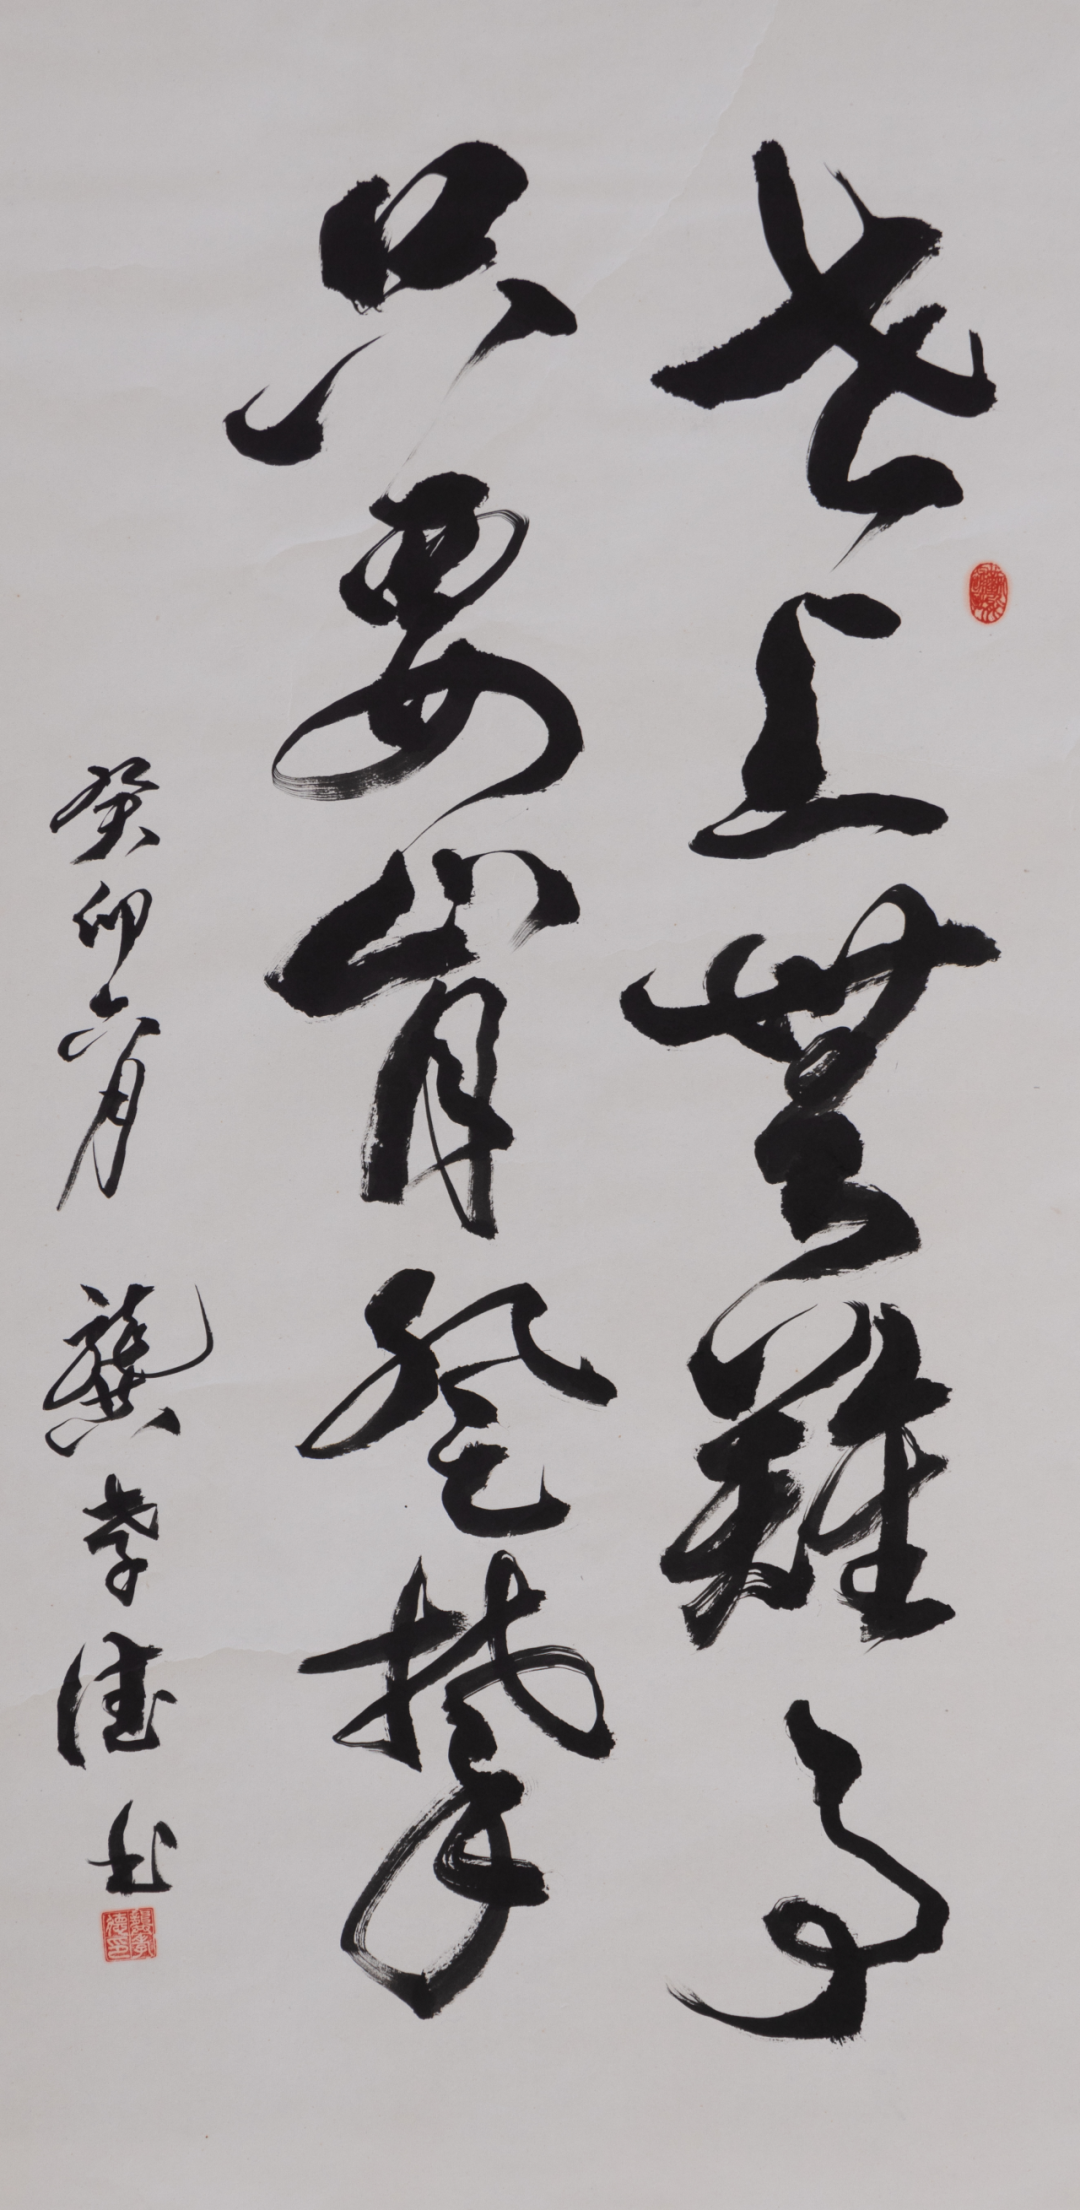 世上無難事
只要肯登攀
癸卯六月 龔孝德書
龔孝德印